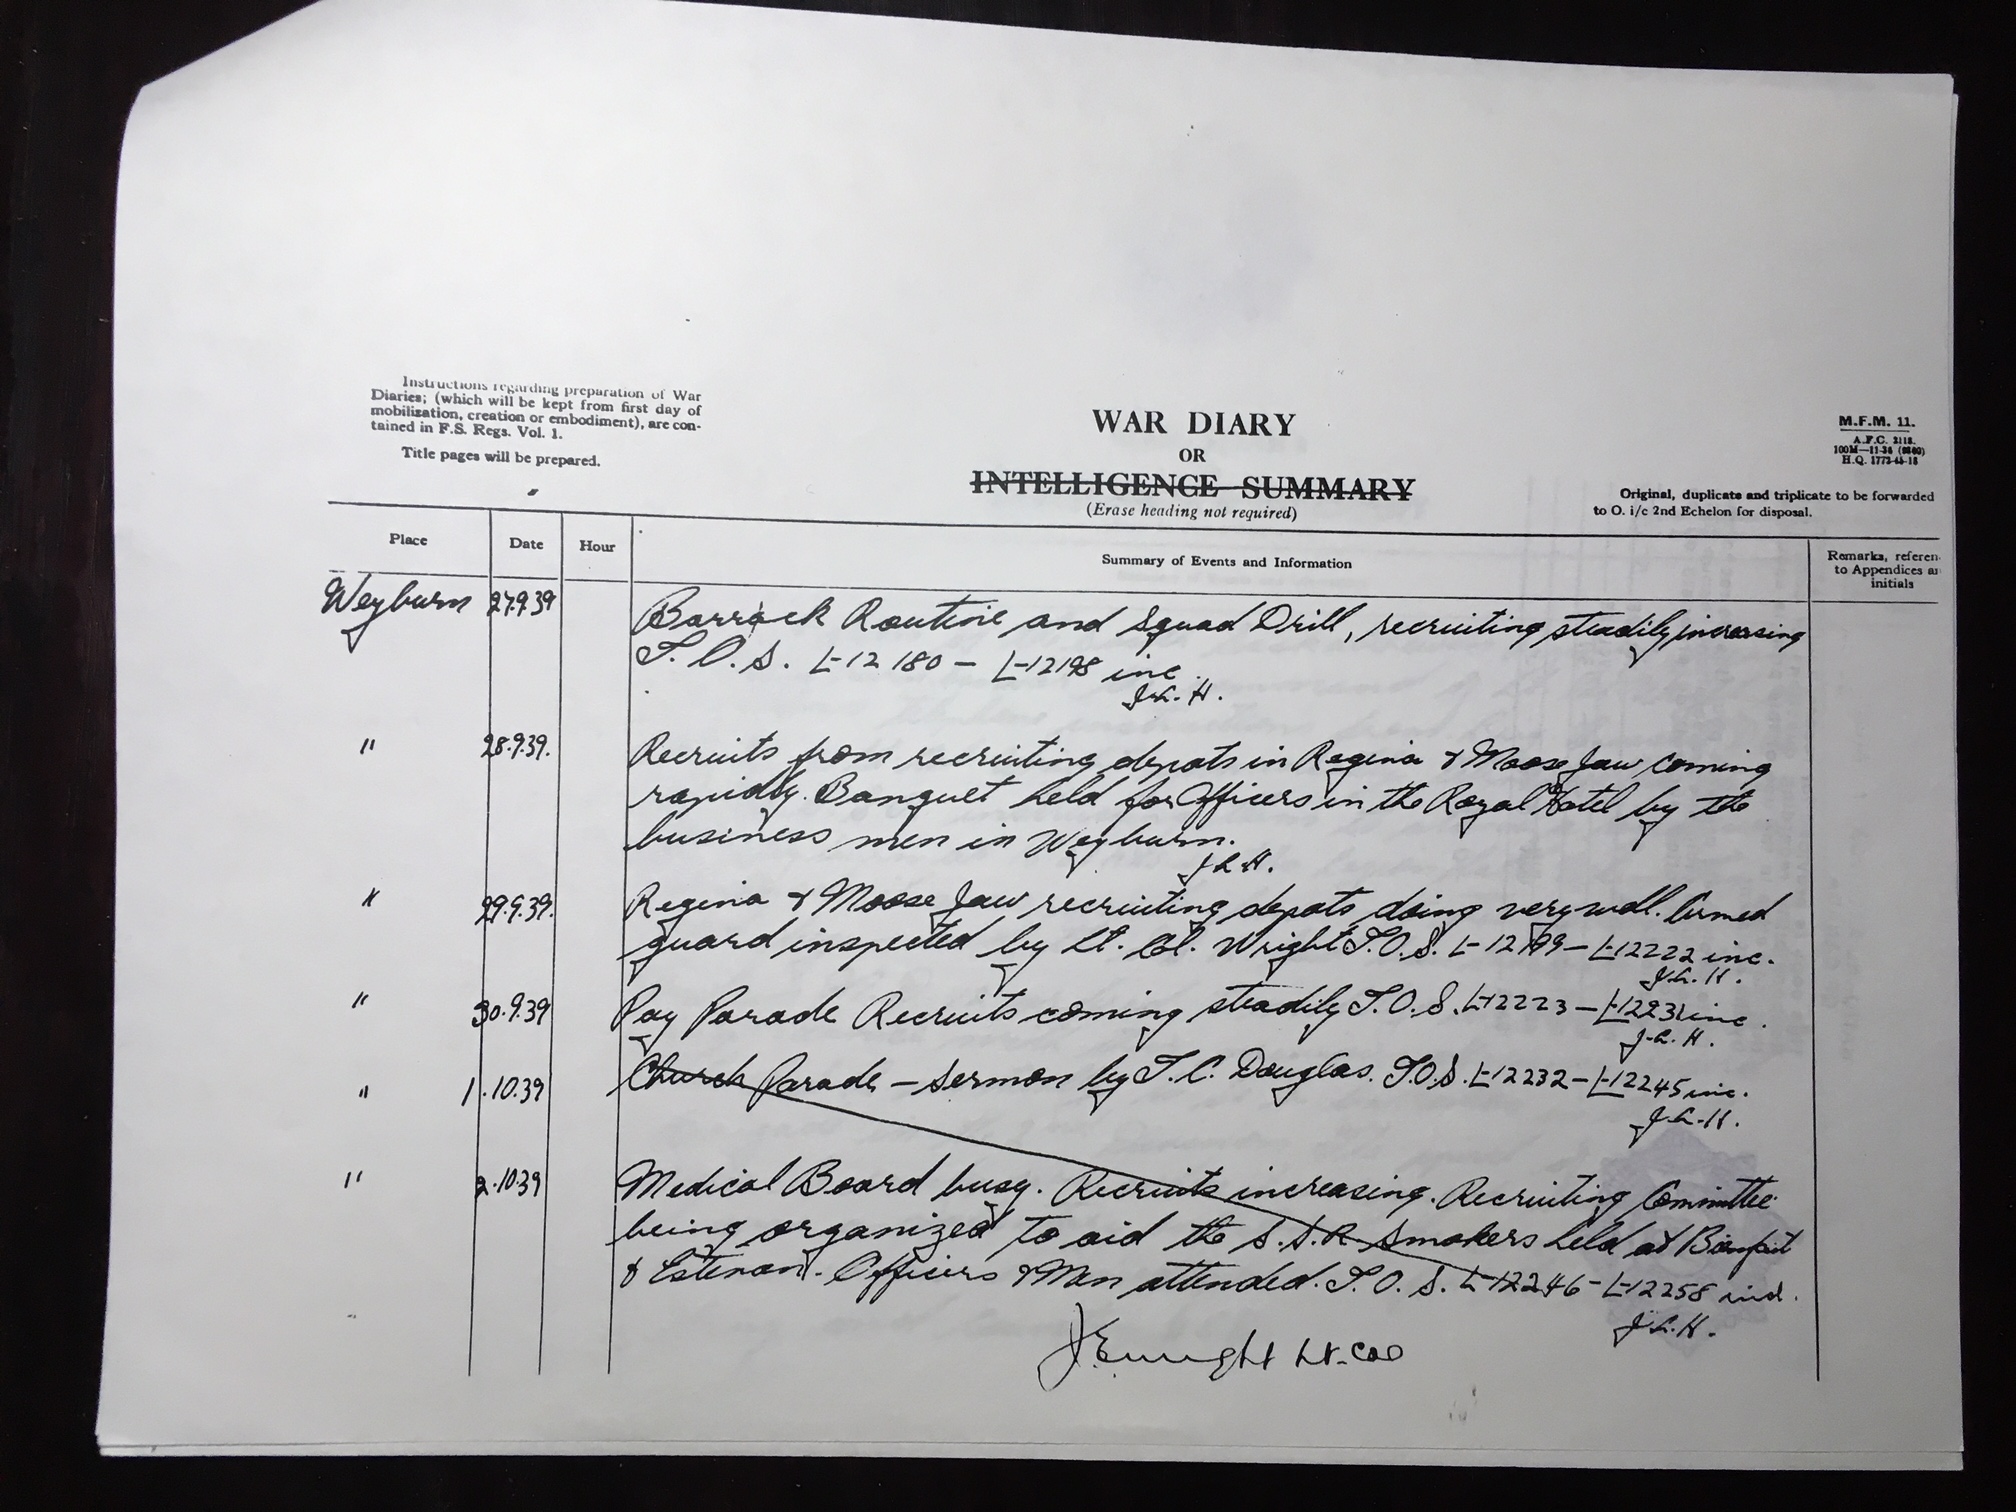 Instructions regarding preparation of War
Diaries; (which will be kept from first day of
mobilization, creation or embodiment), are con-
tained in F.S. Regs. Vol. 1.
Title pages will be prepared.
WAR DIARY
OR
INTELLIGENCE SUMMARY
(Erase heading not required)
M.F.M. 11.
A.F.C. 2118.
100M—11-36 (9860)
H.Q. 1772-45-18
Original, duplicate and triplicate to be forwarded
to O. i/c 2nd Echelon for disposal.
Place Date Hour Summary of Events and Information
Remarks, referen
to Appendices an
initials
Weyburn 27.9.39 Barrack Routine and Squad Drill, recruiting steadily increasing
T.O.S. L-12180 – L-12198 inc.
J.L.H.
" 28.9.39. Recruits from recruiting depots in Regina & Moose Jaw coming
rapidly. Banquet held for Officers in the Royal Hotel by the
business men in Weyburn.
J.L.H.
" 29.9.39. Regina & Moose Jaw recruiting depots doing very well. Armed
guard inspected by Lt. Col. Wright T.O.S. L-12199 – L-12222 inc.
J.L.H.
" 30.9.39 Pay Parade Recruits coming steadily T.O.S. L-12223 – L-12231 inc.
J.L.H.
" 1.10.39 Church Parade – Sermon by T.C. Douglas. T.O.S. L-12232 – L-12245 inc.
J.L.H.
" 2.10.39 Medical Board busy. Recruits increasing. Recruiting Committee
being organized to aid the S.S.R. Smokers held at Bienfait
& Estevan. Officers & Men attended. T.O.S. L-12246 – L-12258 incl.
J.L.H.
J.E. Wright Lt-Col